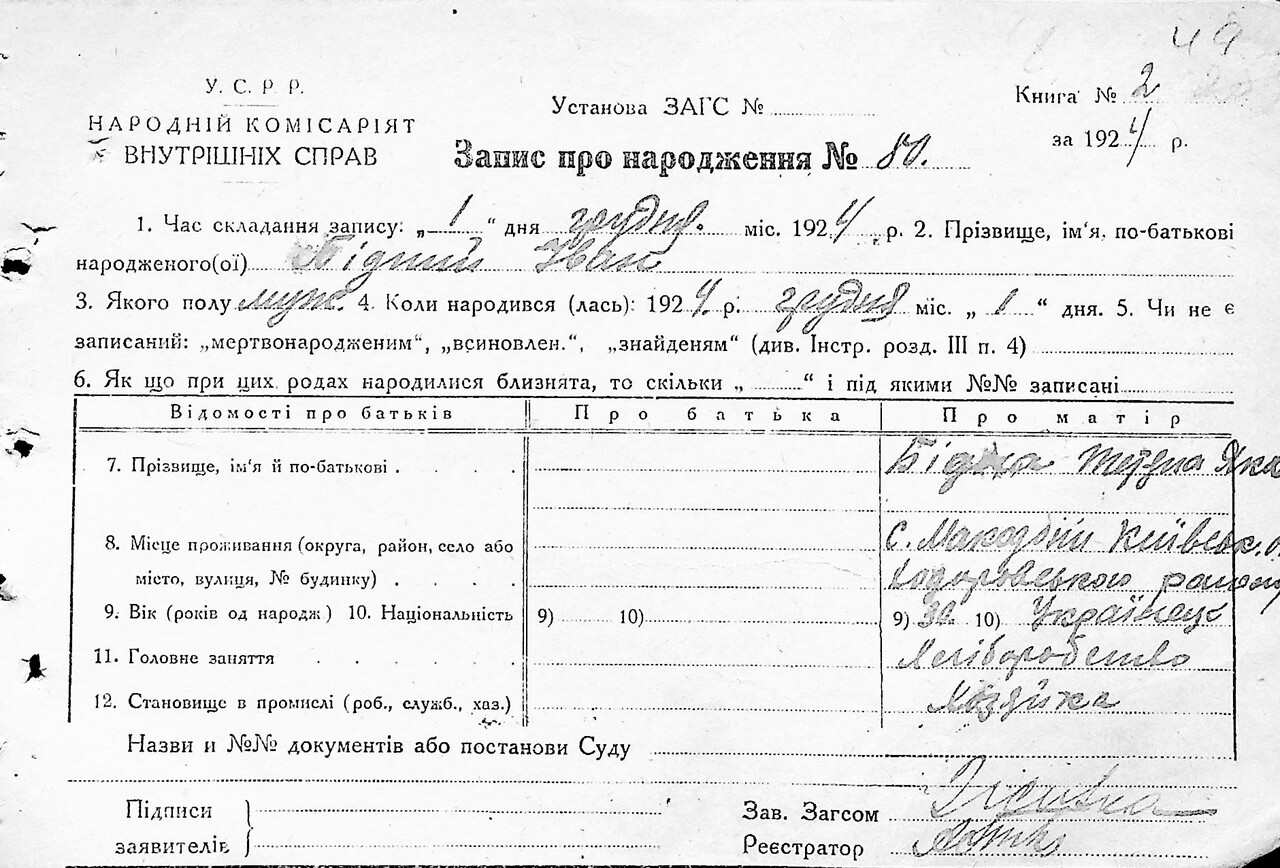 49
У. С. Р Р.
НАРОДНІЙ КОМІСАРІЯТ
ВНУТРІШНІХ СПРАВ
Установа ЗАГС №
Книга № 2
за 1924 р.
Запис про народження № 80.
1. Час складання запису: „1“ дня грудня. міс. 1924 р. 2. Прізвище, ім'я, по-батькові
народженого(ої) Бідний Іван
3. Якого полу муж. 4. Коли народився (лась): 1924. р. грудня міс. „1“ дня. 5. Чи не є
записаний: „мертвонародженим“, „всиновлен.“, „знайденям“ (див. Інстр. розд. III п. 4)
6. Як що при цих родах народилися близнята, то скільки „ “ і під якими №№ записані
Відомості про батьків Про батька Про матір
7. Прізвище, ім'я й по-батькові . . . . Бідна Тетяна Яка
8. Місце проживання (округа, район, село або С. Македони Київськ.
місто, вулиця, № будинку) . . . . Ходоровського району
9. Вік (років од народж) 10. Національність 9) 10) 9) 10) Українец
11. Головне заняття . . . . Хліборобство
12. Становище в промислі (роб., служб., хаз.)
Назви и №№ документів або постанови Суду
Підписи
заявителів
Зав. Загсом
Реєстратор